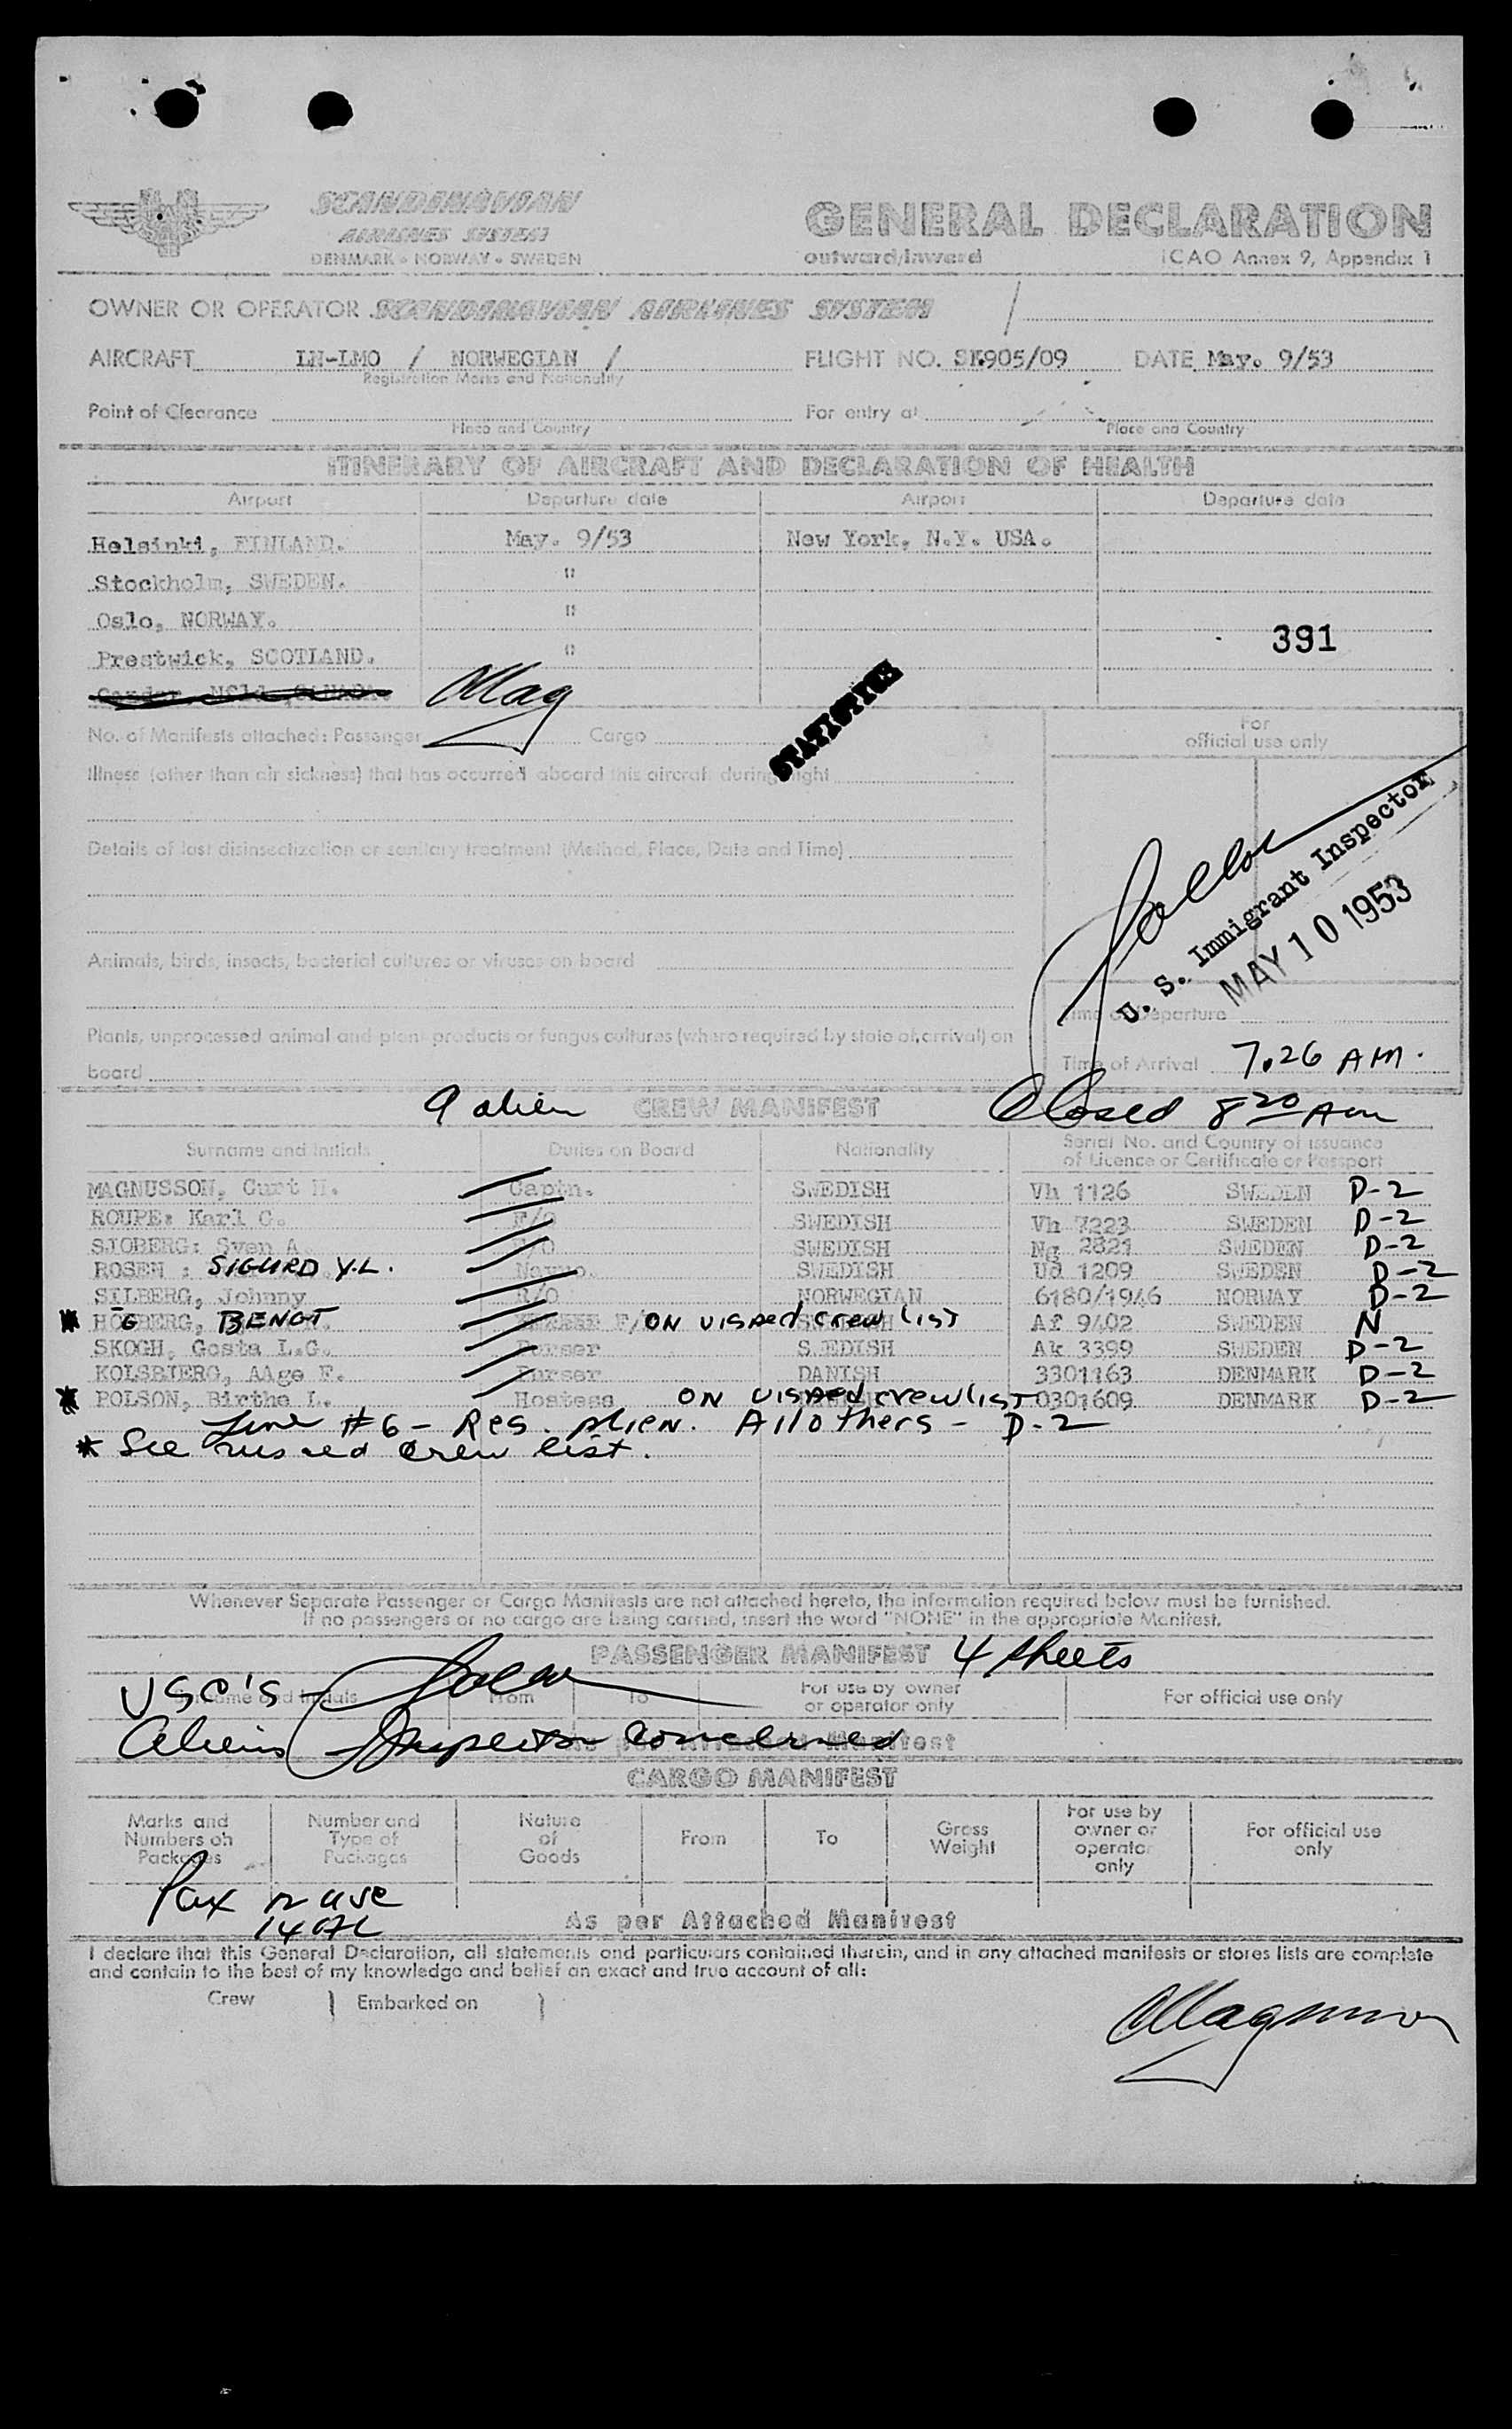 SCANDINAVIAN
AIRLINES SYSTEM
DENMARK • NORWAY • SWEDEN
GENERAL DECLARATION
outward/inward ICAO Annex 9, Appendix 1
OWNER OR OPERATOR SCANDINAVIAN AIRLINES SYSTEM /
AIRCRAFT LN-LMO / NORWEGIAN / FLIGHT NO. SK905/09 DATE May. 9/53
Registration Marks and Nationality
Point of Clearance For entry at
Place and Country Place and Country
ITINERARY OF AIRCRAFT AND DECLARATION OF HEALTH
Airport Departure date Airport Departure date
Helsinki, FINLAND. May. 9/53 New York, N.Y. USA.
Stockholm, SWEDEN. "
Oslo, NORWAY. "
391
Prestwick, SCOTLAND. "
Mag
STATISTICS
No. of Manifests attached: Passenger Cargo
For
official use only
Illness (other than air sickness) that has occurred aboard this aircraft during flight
Details of last disinsectization or sanitary treatment (Method, Place, Date and Time)
U. S. Immigrant Inspector
MAY 10 1953
Animals, birds, insects, bacterial cultures or viruses on board
Time of Departure
Plants, unprocessed animal and plant products or fungus cultures (where required by state of arrival) on
board
Time of Arrival 7.26 AM.
9 alien CREW MANIFEST Closed 8 20 Am
Surname and Initials Duties on Board Nationality Serial No. and Country of issuance
of Licence or Certificate or Passport
MAGNUSSON, Curt H. Captn. SWEDISH Vh 1126 SWEDEN D-2
ROUPE: Karl G. F/O SWEDISH Vh 7223 SWEDEN D-2
SJOBERG: Sven A. SWEDISH Ng 2821 SWEDEN D-2
ROSEN : SIGURD Y.L. SWEDISH Ud 1209 SWEDEN D-2
SILBERG, Johnny R/O NORWEGIAN 6180/1946 NORWAY D-2
* HÖGBERG, BENGT ON VISAED CREW LIST Af 9402 SWEDEN N
SKOGH, Gosta L.G. Purser SWEDISH Ak 3399 SWEDEN D-2
KOLSBJERG, AAge F. Purser DANISH 3301163 DENMARK D-2
* POLSON, Birthe L. Hostess ON VISAED crew LIST 0301609 DENMARK D-2
Line #6 - Res. Alien. All others - D-2
* See visaed crew list.
Whenever Separate Passenger or Cargo Manifests are not attached hereto, the information required below must be furnished.
If no passengers or no cargo are being carried, insert the word "NONE" in the appropriate Manifest.
PASSENGER MANIFEST 4 sheets
USC'S
Surname and Initials From To For use by owner
or operator only For official use only
Aliens Inspector concerned
Manifest
CARGO MANIFEST
Marks and
Numbers on
Packages Number and
Type of
Packages Nature
of
Goods From To Gross
Weight For use by
owner or
operator
only For official use
only
Pax
As per Attached Manivest
I declare that this General Declaration, all statements and particulars contained therein, and in any attached manifests or stores lists are complete
and contain to the best of my knowledge and belief an exact and true account of all:
Crew ) Embarked on )
Magnusson